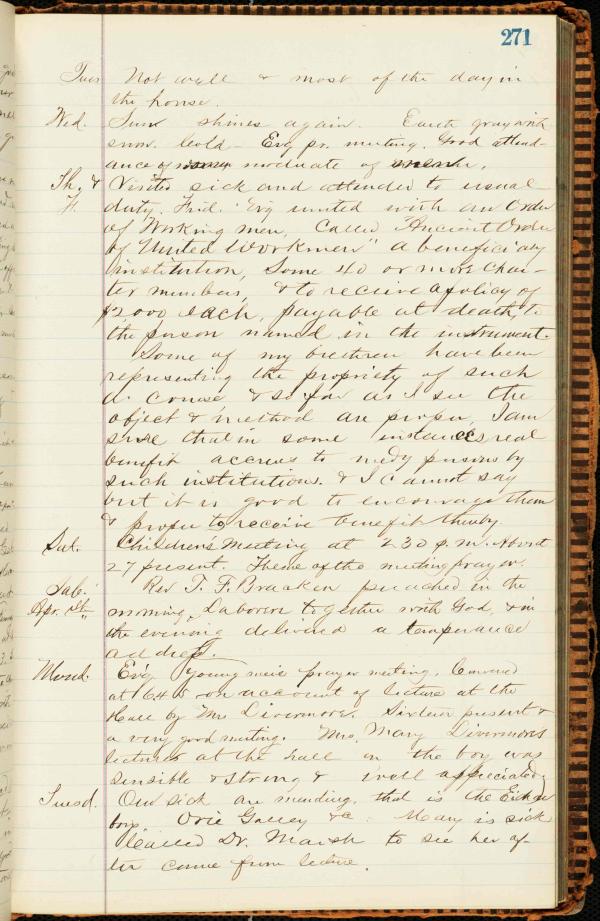 271
Tues Not well & most of the day in
the house.
Wed. Sun shines again. Earth gray with
snow. Cold - Evg pr. meeting. Good attend-
ance of moduate of
Th. & Visited sick and attended to usual
F. duty. Frid. Evg united with an Order
of Working men, Called "Ancient Order
of United Workmen" a beneficiary
institution, Some 40 or more Char-
ter members, & to receive a policy of
$2000 each, payable at death, to
the person named in the instrument.
Some of my brethren have been
representing the propriety of such
a course & so far as I see the
object & method are proper, I am
sure that in some instances real
benefit accrues to nedy persons by
such institutions. & I cannot say
but it is good to encourage them
& proper to receive benefit thereby.
Sat. Children's Meeting at 2.30 p.m. About
27 present. Theme of the meeting prayer.
Sab. Rev T. F. Bracken preached in the
Apr. morning, Laborers together with God, & in
the evening delivered a temperance
address.
Mond. Ev'g Young mens prayer meeting. Convened
at 6.45 on account of lecture at the
Hall by Mrs Livermore. Sixteen present &
a very good meeting. Mrs. Mary Livermores
lecture at the hall on the boy was
sensible & strong & well appreciated.
Tuesd. Our sick are mending, that is the
boys. Ovie Galley &c. Mary is sick
Called Dr. Marsh to see her af-
ter come from lecture.